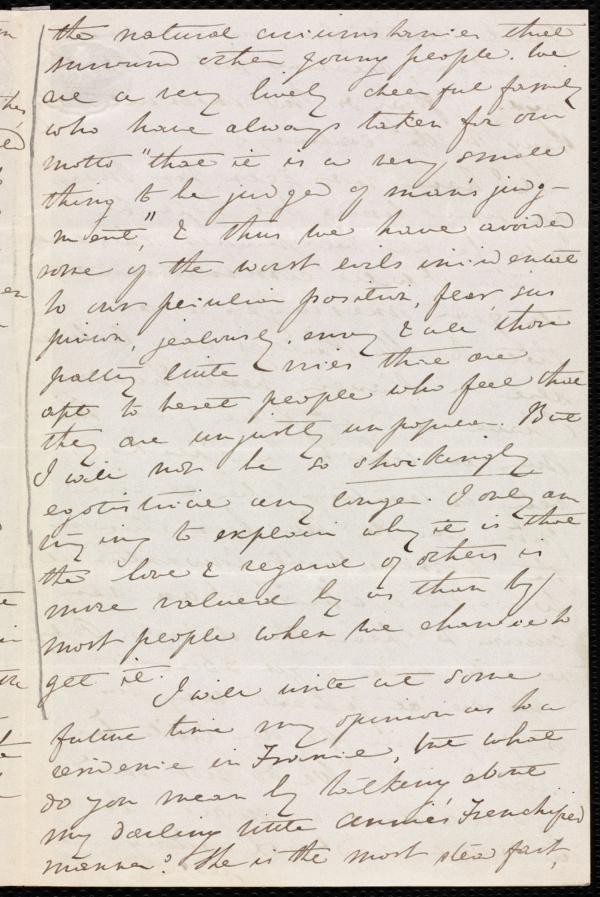 the natural circumstances that
surround other young people. We
are a very lively cheerful family
who have always taken for our
motto "that it is a very small
thing to be judged of man's judg-
ment", & thus we have avoided
some of the worst evils incident
to our peculiar position, fear, sus
picion, jealousy, envy & all those
paltry little vices that are
apt to beset people who feel that
they are unjustly unpopular. But
I will not be so shockingly
egotistical any longer. I only am
trying to explain why it is that
the love & regard of others is
more valued by us than by
most people when we chance to
get it.
I will write at some
future time my opinion as to a
residence in France, but what
do you mean by talking about
my darling little Annie's Frenchified
manner? She is the most steadfast,